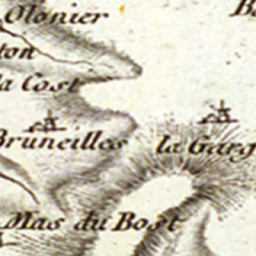 Olonier
B
ton
la Cost
Bruneilles
la Garg
Mas du Bost